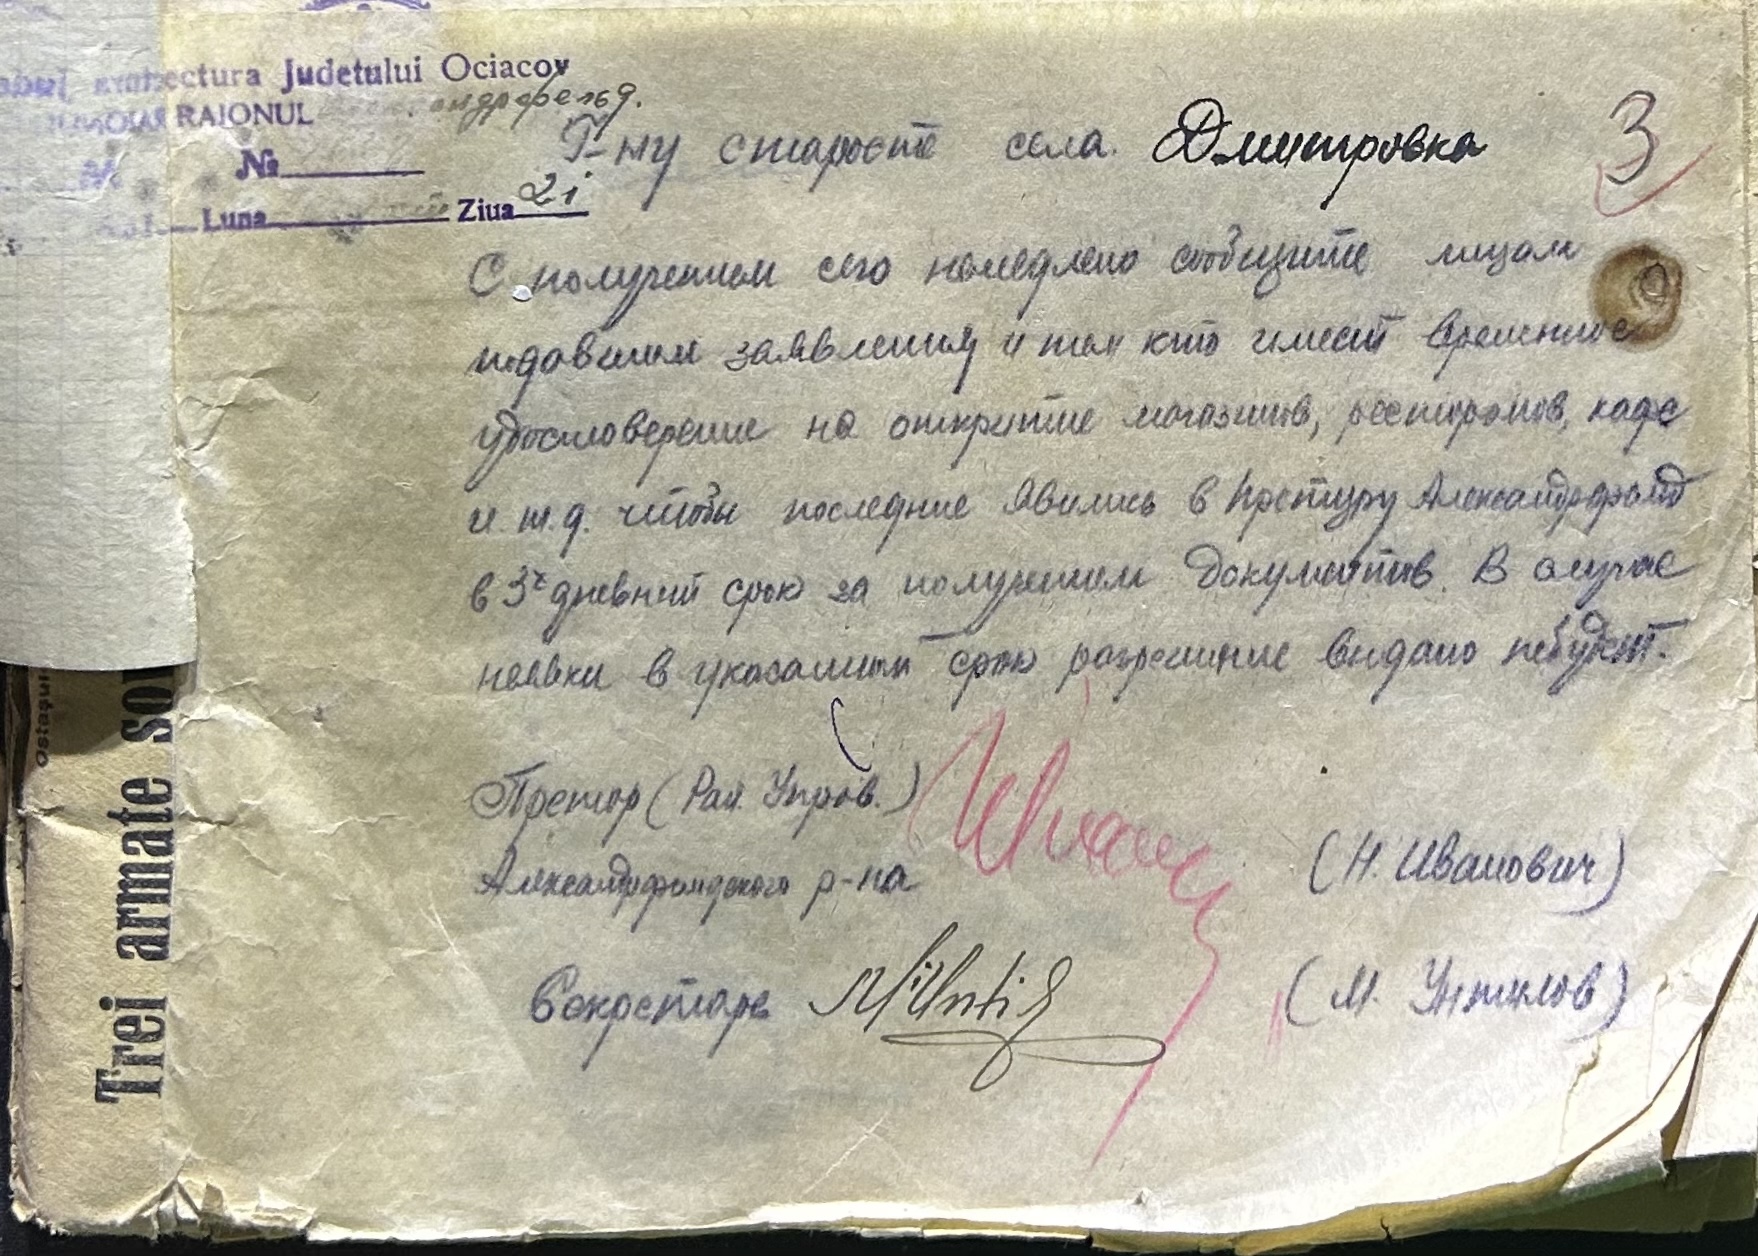 Judetului Ociacov
RAIONUL
№
Luna Ziua 21
3
Г-ну старосте села Дмитровка
С получением сего немедлено сообщите лицам
подавшим заявления и тем кто имеет временное
удостоверение на открытие магазинов, ресторанов, кафе
и т.д. чтобы последние явились в Претуру Александрофельд
в 3х дневный срок за получением документов. В случае
неявки в указанный срок разрешение выдано небудет.
Претор (Рай. Управ.)
Александрофельдского р-на
(Н. Иванович)
Секретарь
(М. Унтилов)
Trei armate